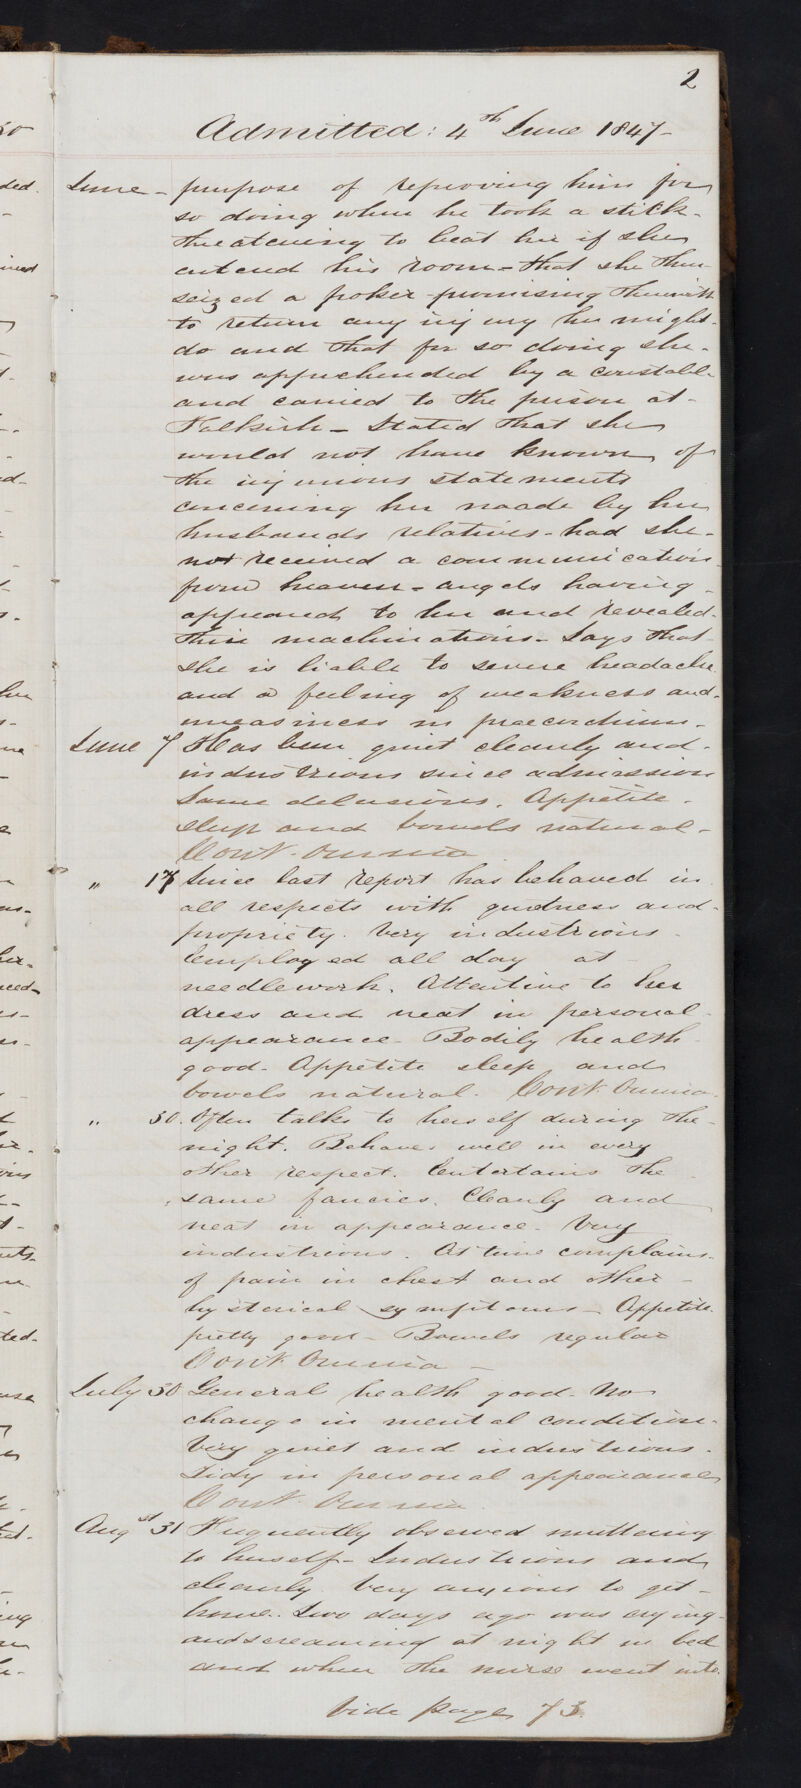 2
Admitted: 4th June 1847-
June - purpose of reproving him for
so doing when he took a stick -
threatening to beat her if she
entered his room - that she then
seized a poker promising therewith
to return any injury he might -
do and that for so doing she -
was apprehended by a constable
and carried to the prison at -
Falkirk - Stated that she
would not have known of
the injurious statements
concerning her made by her
husbands relatives - had she -
not received a communication
from heaven - angels having -
appeared to her and revealed -
their machinations - Says that
she is liable to severe headache
and a feeling of weakness and -
uneasiness in praecordium -
June 7 Has been quiet cleanly and -
industrious since admission
Same delusions. Appetite -
sleep and bowels natural -
Cont. Omnia
" 17 Since last report has behaved in
all respects with quietness and -
propriety. Very industrious -
Employed all day at
needlework. Attentive to her
dress and neat in personal
appearance - Bodily health
good. Appetite sleep and
bowels natural. Cont. Omnia.
" 30. Often talks to herself during the -
night. Behaves well in every
other respect. Entertains the
same fancies. Cleanly and
neat in appearance. Very
industrious. At time complains
of pain in chest and other -
hysterical symptoms - Appetite
pretty good - Bowels regular
Cont. Omnia -
July 30 General health good. No
change in mental condition.
Very quiet and industrious.
Tidy in personal appearance
Cont. Omnia.
Augst 31 Frequently observed muttering
to herself - Industrious and
cleanly. Very anxious to get -
home. Two days ago was crying -
and screaming at night in bed
and when the nurse went into
Vide page 73.